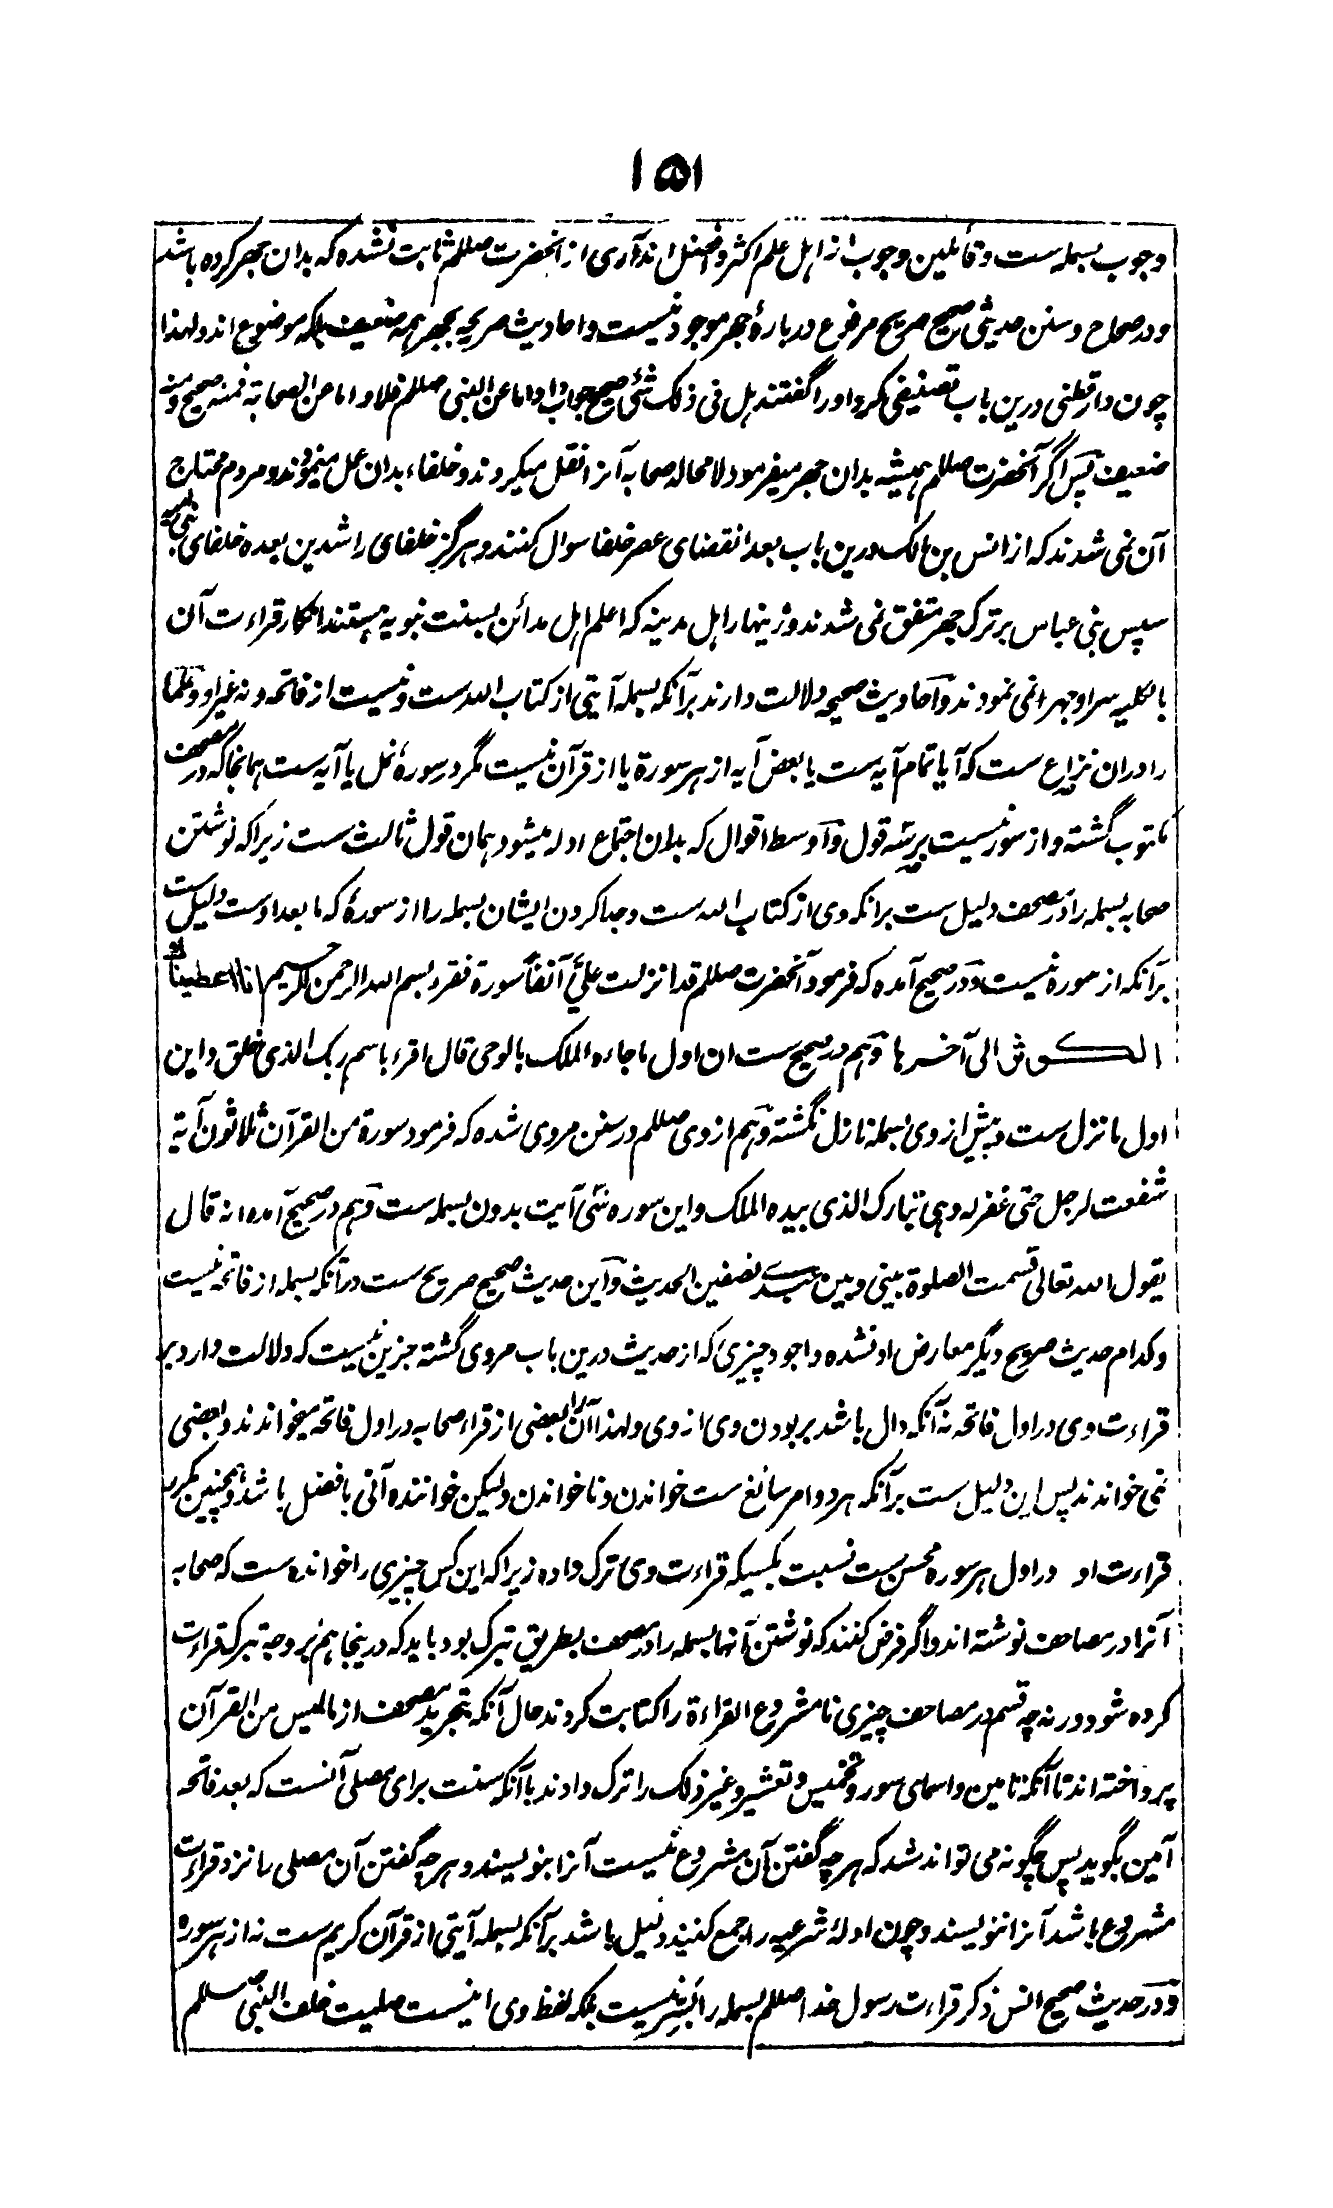 ۱۵۱
وجوب بسمله ست و قائلین وجوب از اهل علم اکثر و افضل اند آری از آنحضرت صللم ثابت نشده که بدان جهر کرده باشد
و در صحاح و سنن حدیثی صحیح صریح مرفوع در بارهٔ جهر موجود نیست و احادیث صریحه بجهر همه ضعیف بلکه موضوع اند و لهذا
چون دارقطنی درین باب تصنیفی کرد او را گفتند هل فی ذلک شئ صحیح جواب داد اما عن النبی صللم فلا و اما عن الصحابة فمنه صحیح و منه
ضعیف پس اگر آنحضرت صللم همیشه بدان جهر میفرمود لا محاله صحابه آنرا نقل میکردند و خلفاء بدان عمل مینمودند و مردم محتاج
آن نمی شدند که از انس بن مالک درین باب بعد انقضای عصر خلفا سوال کنند و هرگز خلفای راشدین بعده خلفای بنی امیه
سپس بنی عباس بر ترک جهر متفق نمی شدند و زینهار اهل مدینه که اعلم اهل مدائن بسنت نبویه هستند انکار قراءت آن
بالکلیه سرا و جهرا نمی نمودند و احادیث صحیحه دلالت دارند بر آنکه بسمله آیتی از کتاب الله ست و نیست از فاتحه و نه غیر او و علما
را دران نزاع ست که آیا تمام آیه ست یا بعض آیه از هر سورة یا از قرآن نیست مگر در سورهٔ نمل یا آیه ست همانجا که در مصحف
مکتوب گشته و از سور نیست بر سه قول و اوسط اقوال که بدان اجتماع ادله میشود همان قول ثالث ست زیرا که نوشتن
صحابه بسمله را در مصحف دلیل ست برانکه وی از کتاب الله ست و جدا کردن ایشان بسمله را از سورهٔ که ما بعد اوست دلیل ست
برآنکه از سوره نیست و در صحیح آمده که فرمود آنحضرت صللم قد انزلت علیّ آنفاً سورة فقرء بسم الله الرحمن الرحیم انا اعطیناک
الکوثر الی آخرها و هم در صحیح ست ان اول ما جاءه الملک بالوحی قال اقرء باسم ربک الذی خلق و این
اول ما نزل ست و پیش از وی بسمله نازل نگشته و هم از وی صللم در سنن مروی شده که فرمود سورة من القرآن ثلاثون آیة
شفعت لرجل حتی غفر له و هی تبارک الذی بیده الملک و این سوره سی آیت بدون بسمله ست و هم در صحیح آمده انه قال
یقول الله تعالی قسمت الصلوة بینی و بین عبدی نصفین الحدیث و این حدیث صحیح صریح ست در آنکه بسمله از فاتحه نیست
و کدام حدیث صریح دیگر معارض او نشده و اجود چیزی که از حدیث درین باب مروی گشته جز این نیست که دلالت دارد بر
قراءت وی در اول فاتحه نه آنکه دال باشد بر بودن وی از وی و لهذا آن را بعضی از قراء صحابه در اول فاتحه میخواندند و بعضی
نمی خواندند پس این دلیل ست بر آنکه هر دو امر سائغ ست خواندن و ناخواندن و لیکن خواننده آتی بافضل باشد و همچنین
قراءت او در اول هر سوره محسن ست نسبت بکسیکه قراءت وی ترک داده زیرا که این کس چیزی را خوانده ست که صحابه
آنرا در مصاحف نوشته اند و اگر فرض کنند که نوشتن آنها بسمله را در مصحف بطریق تبرک بود باید که در ینجا هم بر وجه تبرک قراءت
کرده شود ورنه چه قسم در مصاحف چیزی نا مشروع القراءة را کتابت کردند حال آنکه بتجرید مصحف از ما لیس من القرآن
پرداخته اند تا آنکه تامین و اسمای سور و تخمیس و تعشیر و غیر ذلک را ترک دادند با آنکه سنت برای مصلی آنست که بعد فاتحه
آمین بگوید پس چگونه می تواند شد که هر چه گفتن آن مشروع نیست آنرا بنویسند و هر چه گفتن آن مصلی را نزد قراءت
مشروع باشد آنرا ننویسند و چون ادلهٔ شرعیه را جمع کنند دلیل باشد بر آنکه بسمله آیتی از قرآن کریم ست نه از هر سوره
و در حدیث صحیح انس ذکر قراءت رسول خدا صللم بسمله را نیست بلکه لفظ وی اینست صلیت خلف النبی صللم